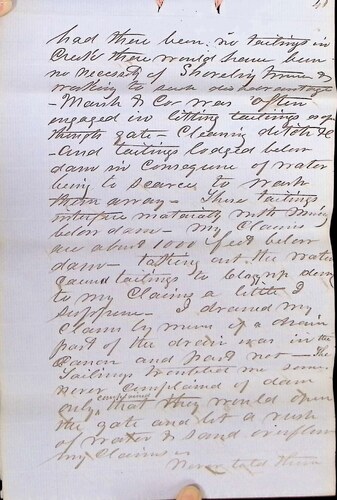 had there been no tailings in
Creek there would have been
no necessity of Shoveling more &
working to such disadvantage
- Marsh & Co was often
engaged in letting tailings
through gate - Cleaning ditch &c
- and tailings lodged below
dam in consequence of water
being to scarce to wash
them away - These tailings
interfere materially with mining
below dam - my Claims
are about 1000 feet below
dam - taking out the water
caused tailings to clog up down
to my Claims a little I
suppose - I drained my
Claim by means of a drain
part of the drain was in the
Canon and part not - The
Tailings troubled me some
never Complained of dam
only complaing that they would open
the gate and let a rush
of water & sand in upon
my Claims
never told them